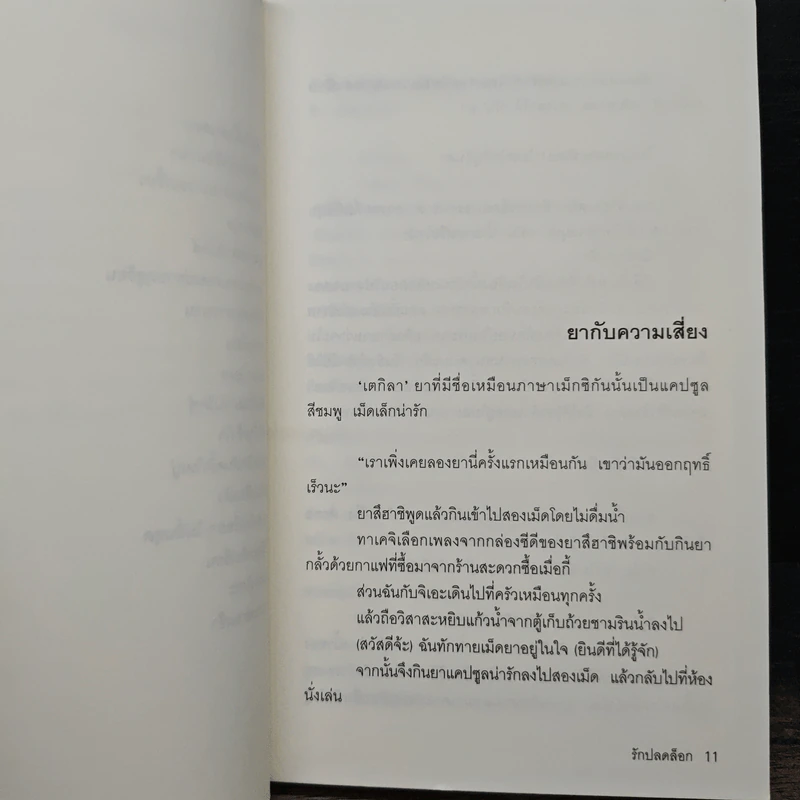 ยากับความเสี่ยง
‘เตกิลา’ ยาที่มีชื่อเหมือนภาษาเม็กซิกันนั้นเป็นแคปซูล
สีชมพู เม็ดเล็กน่ารัก
“เราเพิ่งเคยลองยานี่ครั้งแรกเหมือนกัน เขาว่ามันออกฤทธิ์
เร็วนะ”
ยาสึฮาชิพูดแล้วกินเข้าไปสองเม็ดโดยไม่ดื่มน้ำ
ทาเคจิเลือกเพลงจากกล่องซีดีของยาสึฮาชิพร้อมกับกินยา
กลั้วด้วยกาแฟที่ซื้อมาจากร้านสะดวกซื้อเมื่อกี้
ส่วนฉันกับจิเอะเดินไปที่ครัวเหมือนทุกครั้ง
แล้วถือวิสาสะหยิบแก้วน้ำจากตู้เก็บถ้วยชามรินน้ำลงไป
(สวัสดีจ้ะ) ฉันทักทายเม็ดยาอยู่ในใจ (ยินดีที่ได้รู้จัก)
จากนั้นจึงกินยาแคปซูลน่ารักลงไปสองเม็ด แล้วกลับไปที่ห้อง
นั่งเล่น
รักปลดล็อก 11